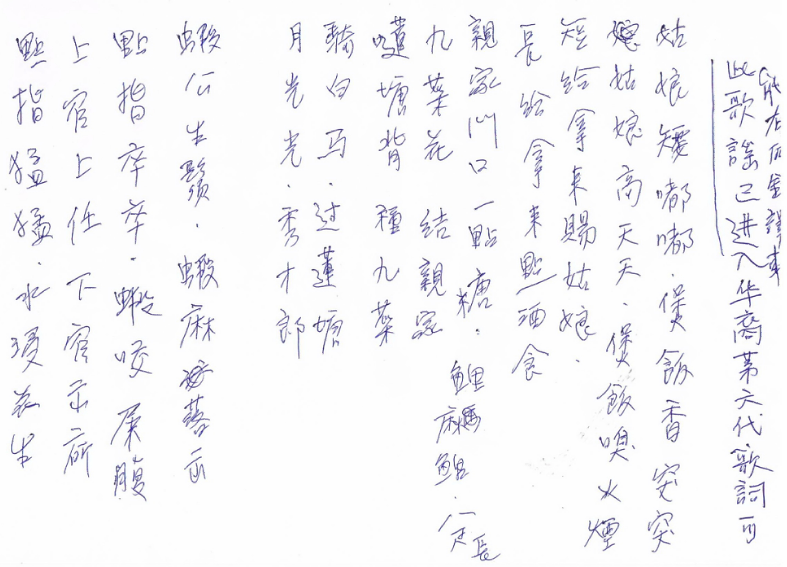 點指猛猛．水浸
上官上任 下官
點指卒卒．蝦咬屎腹
蝦公生鬚．蝦麻
月光光．秀才郎
騎白马．过蓮塘
蓮塘背 種九菜
九菜花 結親家
親家门口一點糖．
鯉麻 鯉．八尺長
長给拿來點酒食
短给拿來賜姑娘．
姑娘高天天．煲飯嗅火煙
姑娘矮嘟嘟．煲飯香突突
此歌謠已进入华裔第六代歌詞可
能在